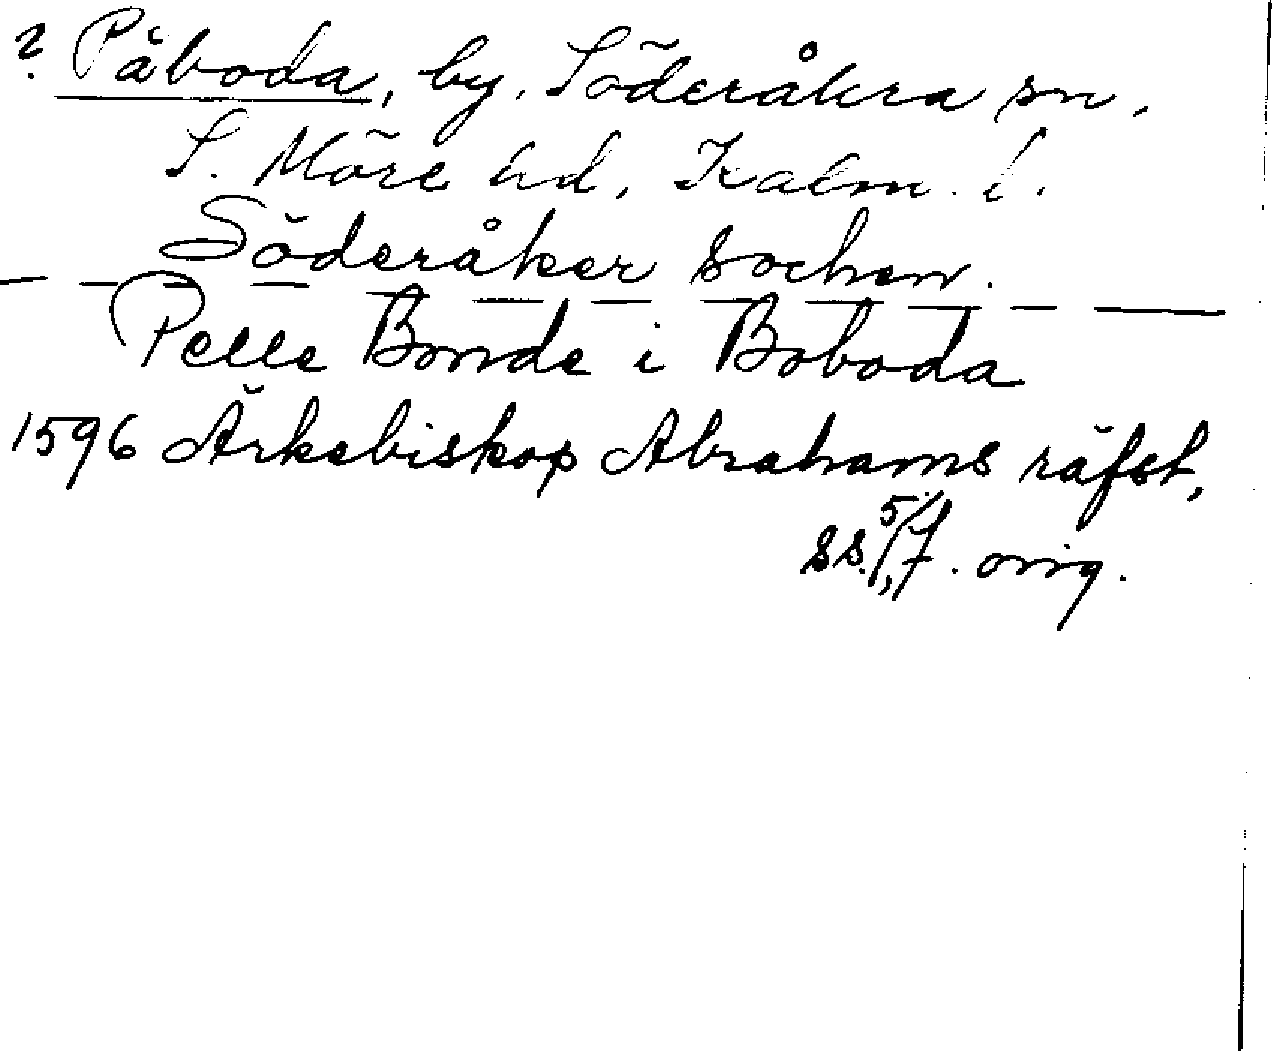 ? Påboda, by, Söderåkra sn,
S. Möre hd, Kalm. l.
Söderåker sochen.
Pelle Bonde i Boboda
1596 Ärkebiskop Abrahams räfst,
ss. 5/7. orig.